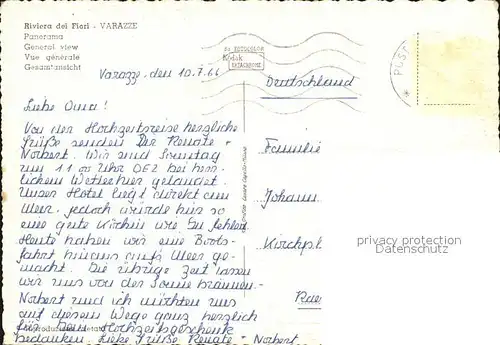 Riviera dei Fiori - VARAZZE
Panorama
General view
Vue générale
Gesamtansicht
Kodak
EKTACHROME
POST
Varazze, den 10.7.66
Deutschland
Liebe Oma!
Von der Hochzeitsreise herzliche
Grüße senden Dir Renate -
Norbert. Wir sind Sonntag
um 11 00 Uhr bei herr-
lichem Wetter hier gelandet.
Unser Hotel liegt direkt am
Meer, jedoch würde hier so
eine gute Köchin wie Du fehlen.
Heute haben wir eine Boots-
fahrt hinaus aufs Meer ge-
macht. Die übrige Zeit lassen
wir uns von der Sonne bräunen.
Norbert und ich möchten uns
auf diesem Wege ganz herzlich
für Dein Hochzeitsgeschenk
bedanken. Liebe Grüße Renate - Norbert
Familie
Johann
Kirchpl
privacy protection
Datenschutz